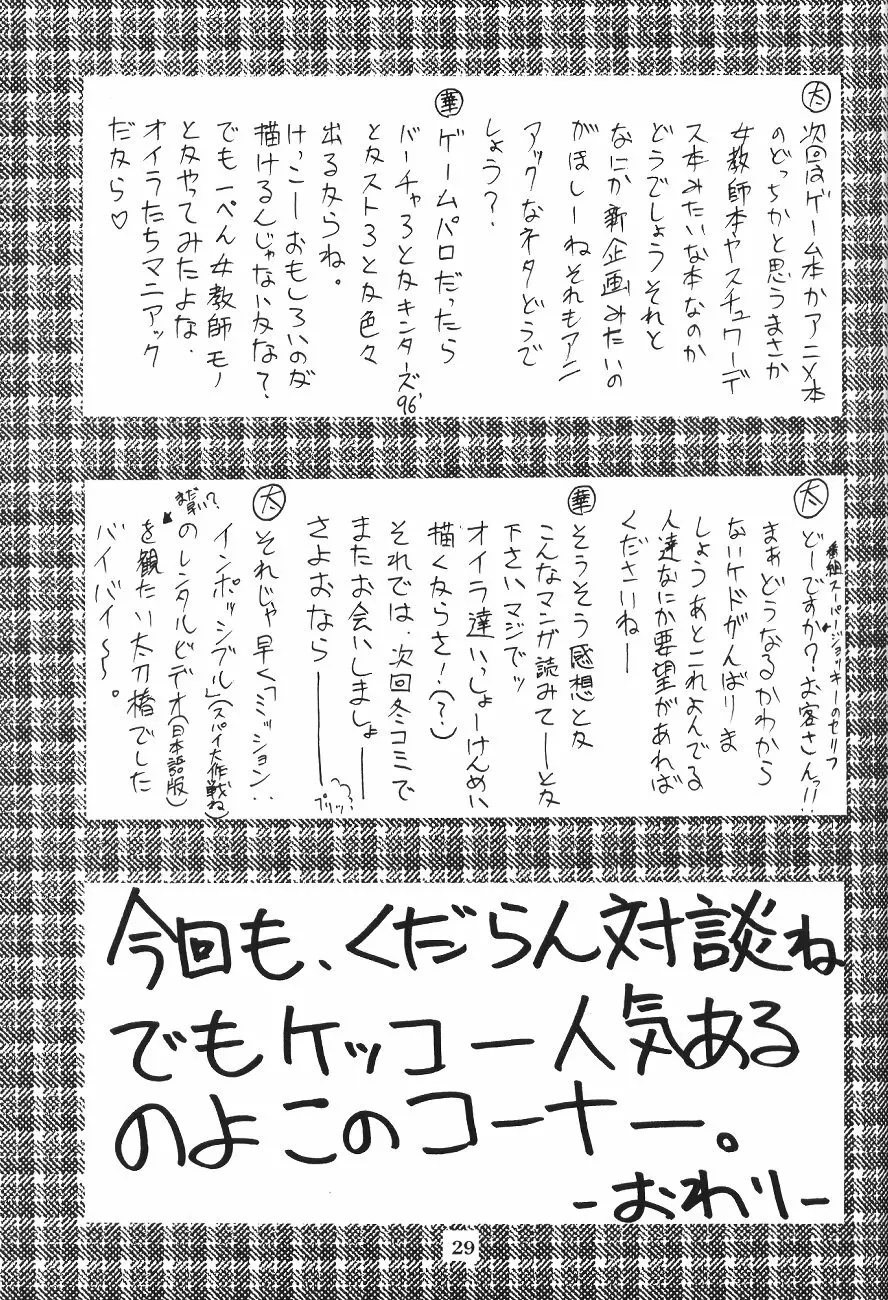 太 次回はゲーム本かアニメ本
のどっちかと思うまさか
女教師本やスチュワーデ
ス本みたいな本なのか
どうでしょうそれと
なにか新企画みたいの
がほしーねそれもアニ
アックなネタどうで
しょう?
華 ゲームパロだったら
バーチャ3とかキンターズ96'
とかスト3とか色々
出るからね。
けっこーおもしろいのが
描けるんじゃないかな?
でも一ぺん女教師モノ
とかやってみたよな.
オイラたちマニアック
だから♡
太 どーですか?お客さんっ!!
番組スーパージョッキーのセリフ
まぁどうなるかわから
ないケドがんばりま
しょうあとこれよんでる
人達なにか要望があれば
くださいねー
華 そうそう感想とか
こんなマンガ読みてーーとか
下さいマジでッ
オイラ達いっしょーけんめい
描くからさ!(?)
それでは、次回冬コミで
またお会いしましょー
さよおならーーー
プリッ??
太 それじゃ早く「ミッション:
インポッシブル」(スパイ大作戦ね)
のレンタルビデオ(日本語版)
まだ早い?
を観たい太刀椿でした
バイバイ〜。
今回も、くだらん対談ね
でもケッコー人気ある
のよこのコーナー。
-おわり-
29